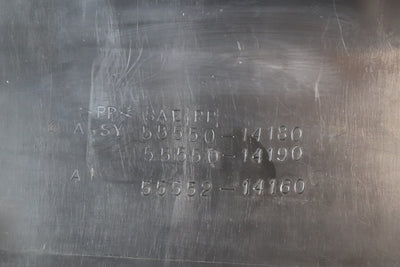 >PP< SAE(PP)
ASSY 55550-14180
55550-14190
A 55552-14160